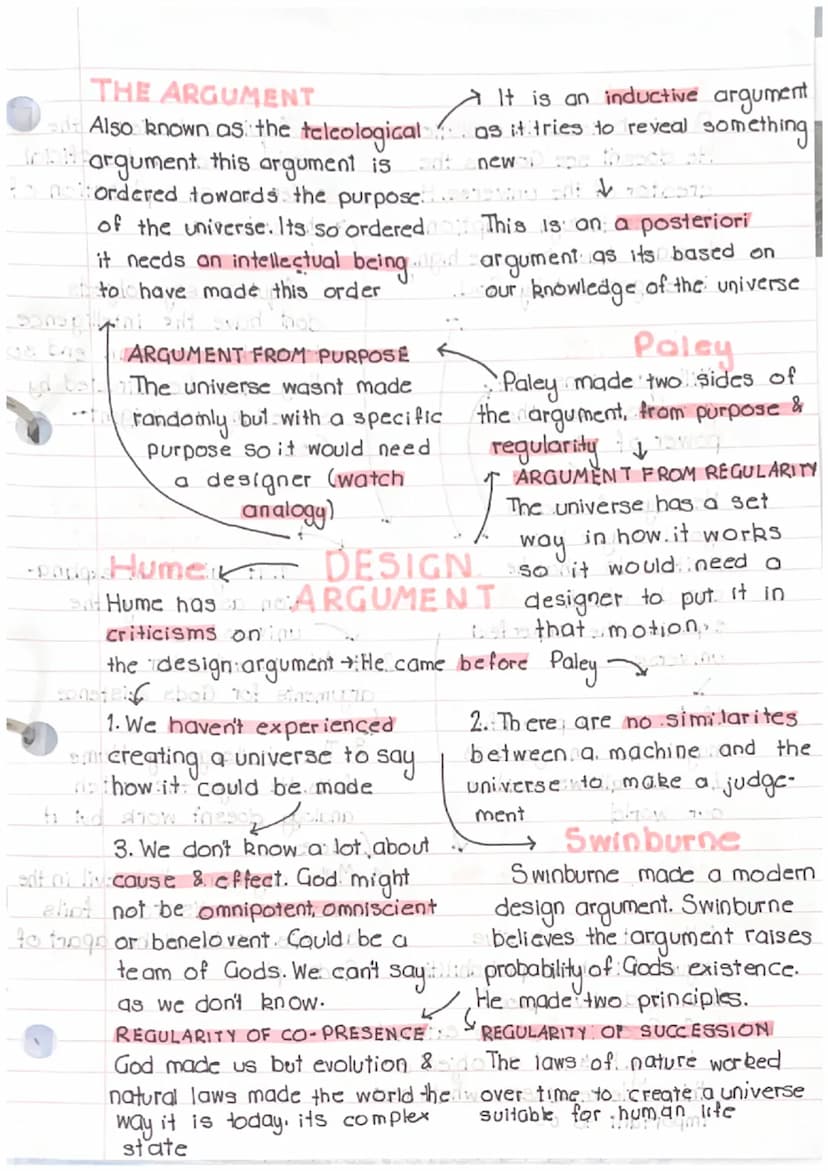 THE ARGUMENT
Also known as the teleological
argument. this argument is
ordered towards the purpose
of the universe. Its so ordered
it needs an intellectual being
to have made this order
It is an inductive argument
as it tries to reveal something
new
This is an a posteriori
argument as its based on
our knowledge of the universe
ARGUMENT FROM PURPOSE
The universe wasnt made
randomly but with a specific
purpose so it would need
a designer (watch
analogy)
Paley
Paley made two sides of
the argument, from purpose &
regularity
ARGUMENT FROM REGULARITY
The universe has a set
way in how it works
so it would need a
designer to put it in
that motion.
DESIGN
ARGUMENT
Hume
Hume has
criticisms on
the design argument → He came before Paley
1. We haven't experienced
creating a universe to say
how it could be made
2. There are no similarites
between a machine and the
universe to make a judge-
ment
3. We don't know a lot about
cause & effect. God might
not be omnipotent, omniscient
or benelovent. Could be a
team of Gods. We can't say
as we don't know.
Swinburne
Swinburne made a modern
design argument. Swinburne
believes the argument raises
probability of Gods existence.
He made two principles.
REGULARITY OF CO-PRESENCE
God made us but evolution &
natural laws made the world the
way it is today, its complex
state
REGULARITY OF SUCCESSION
The laws of nature worked
over time to create a universe
suitable for human life